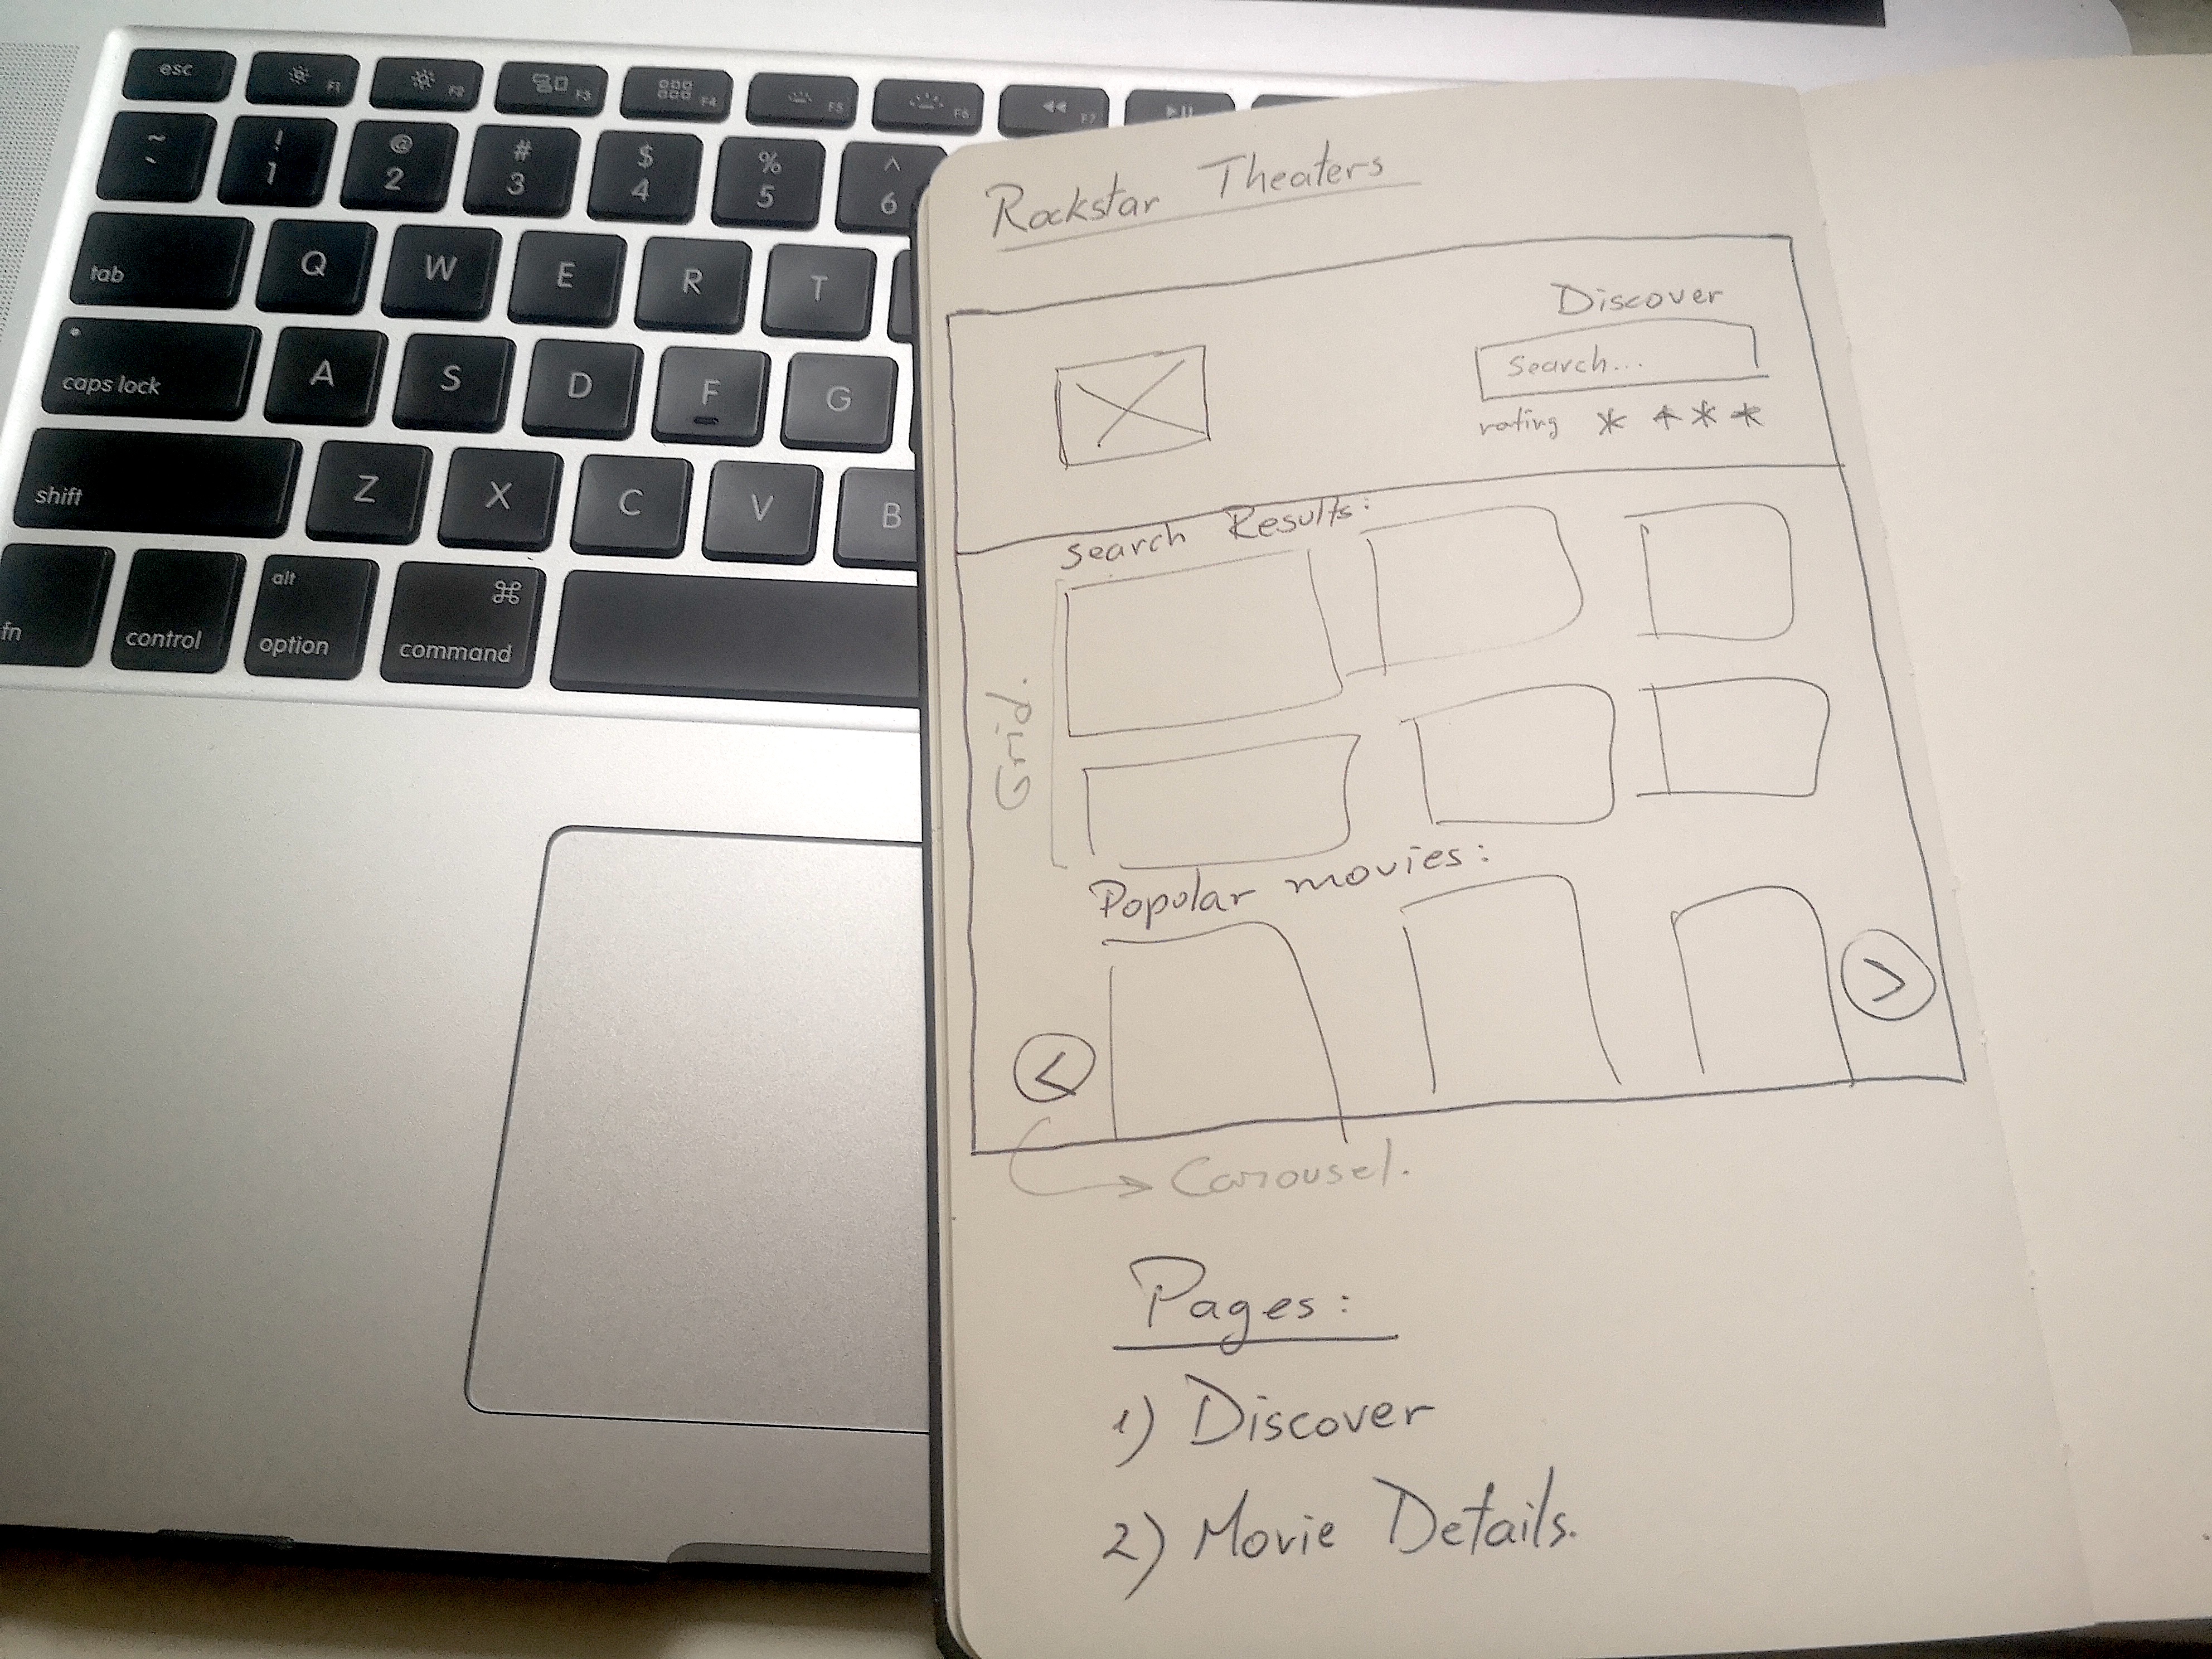 esc F1 F2 F3 F4 F5 F6 F7
~ ! @ # $ % ^
` 1 2 3 4 5 6
tab Q W E R T
caps lock A S D F G
shift Z X C V B
fn control alt option ⌘ command
Rockstar Theaters
Discover
Search...
rating * * * *
Search Results:
Grid.
Popular movies:
<
>
Carousel.
Pages:
1) Discover
2) Movie Details.